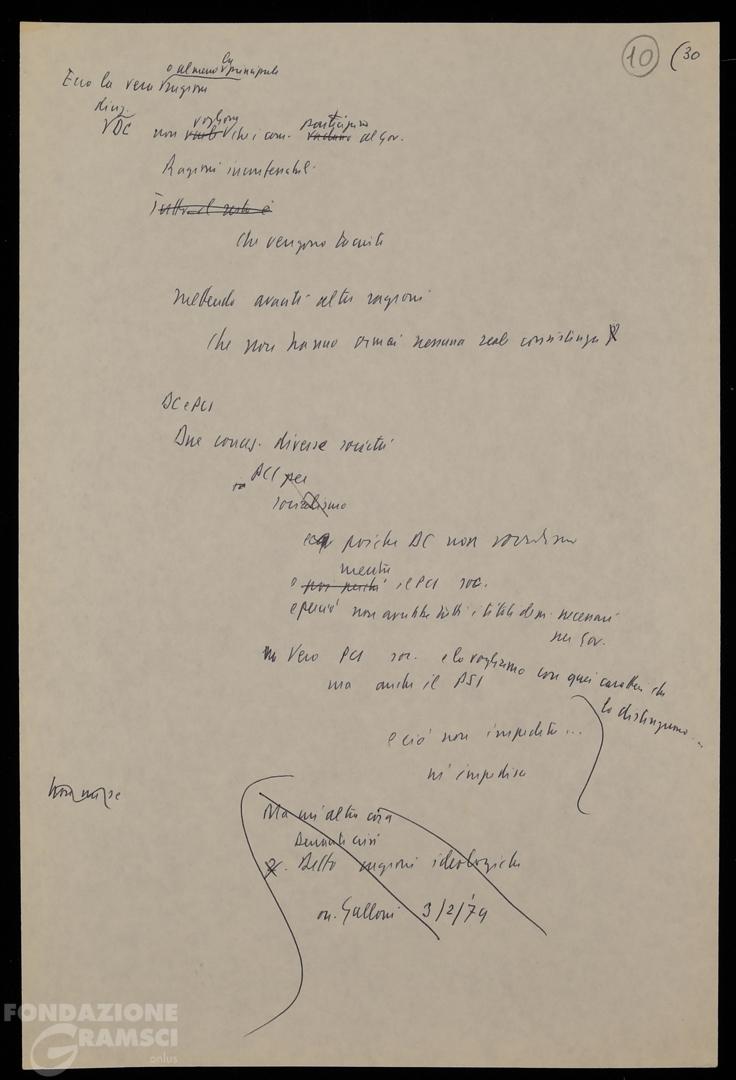 10 (30
o almeno la principale
Ecco la vera ragione
dirig.
DC non vogliono che i com. partecipino al Gov.
Ragioni inconfessabili
Tutto il resto è
che vengono taciute
mettendo avanti altre ragioni
che non hanno ormai nessuna reale consistenza
DC e PCI
Due conces. diverse società
PCI per
socialismo
poiché DC non socialismo
mentre
o poi perché il PCI soc.
e perciò non avrebbe tutti i titoli dem. necessari
nel Gov.
Vero PCI soc. e lo vogliamo con quei caratteri che
lo distinguono ...
ma anche il PSI
e ciò non impedito ...
né impedisce
Ma un'altra cosa
Detto ragioni ideologiche
on. Galloni 3/2/79
FONDAZIONE
GRAMSCI
onlus